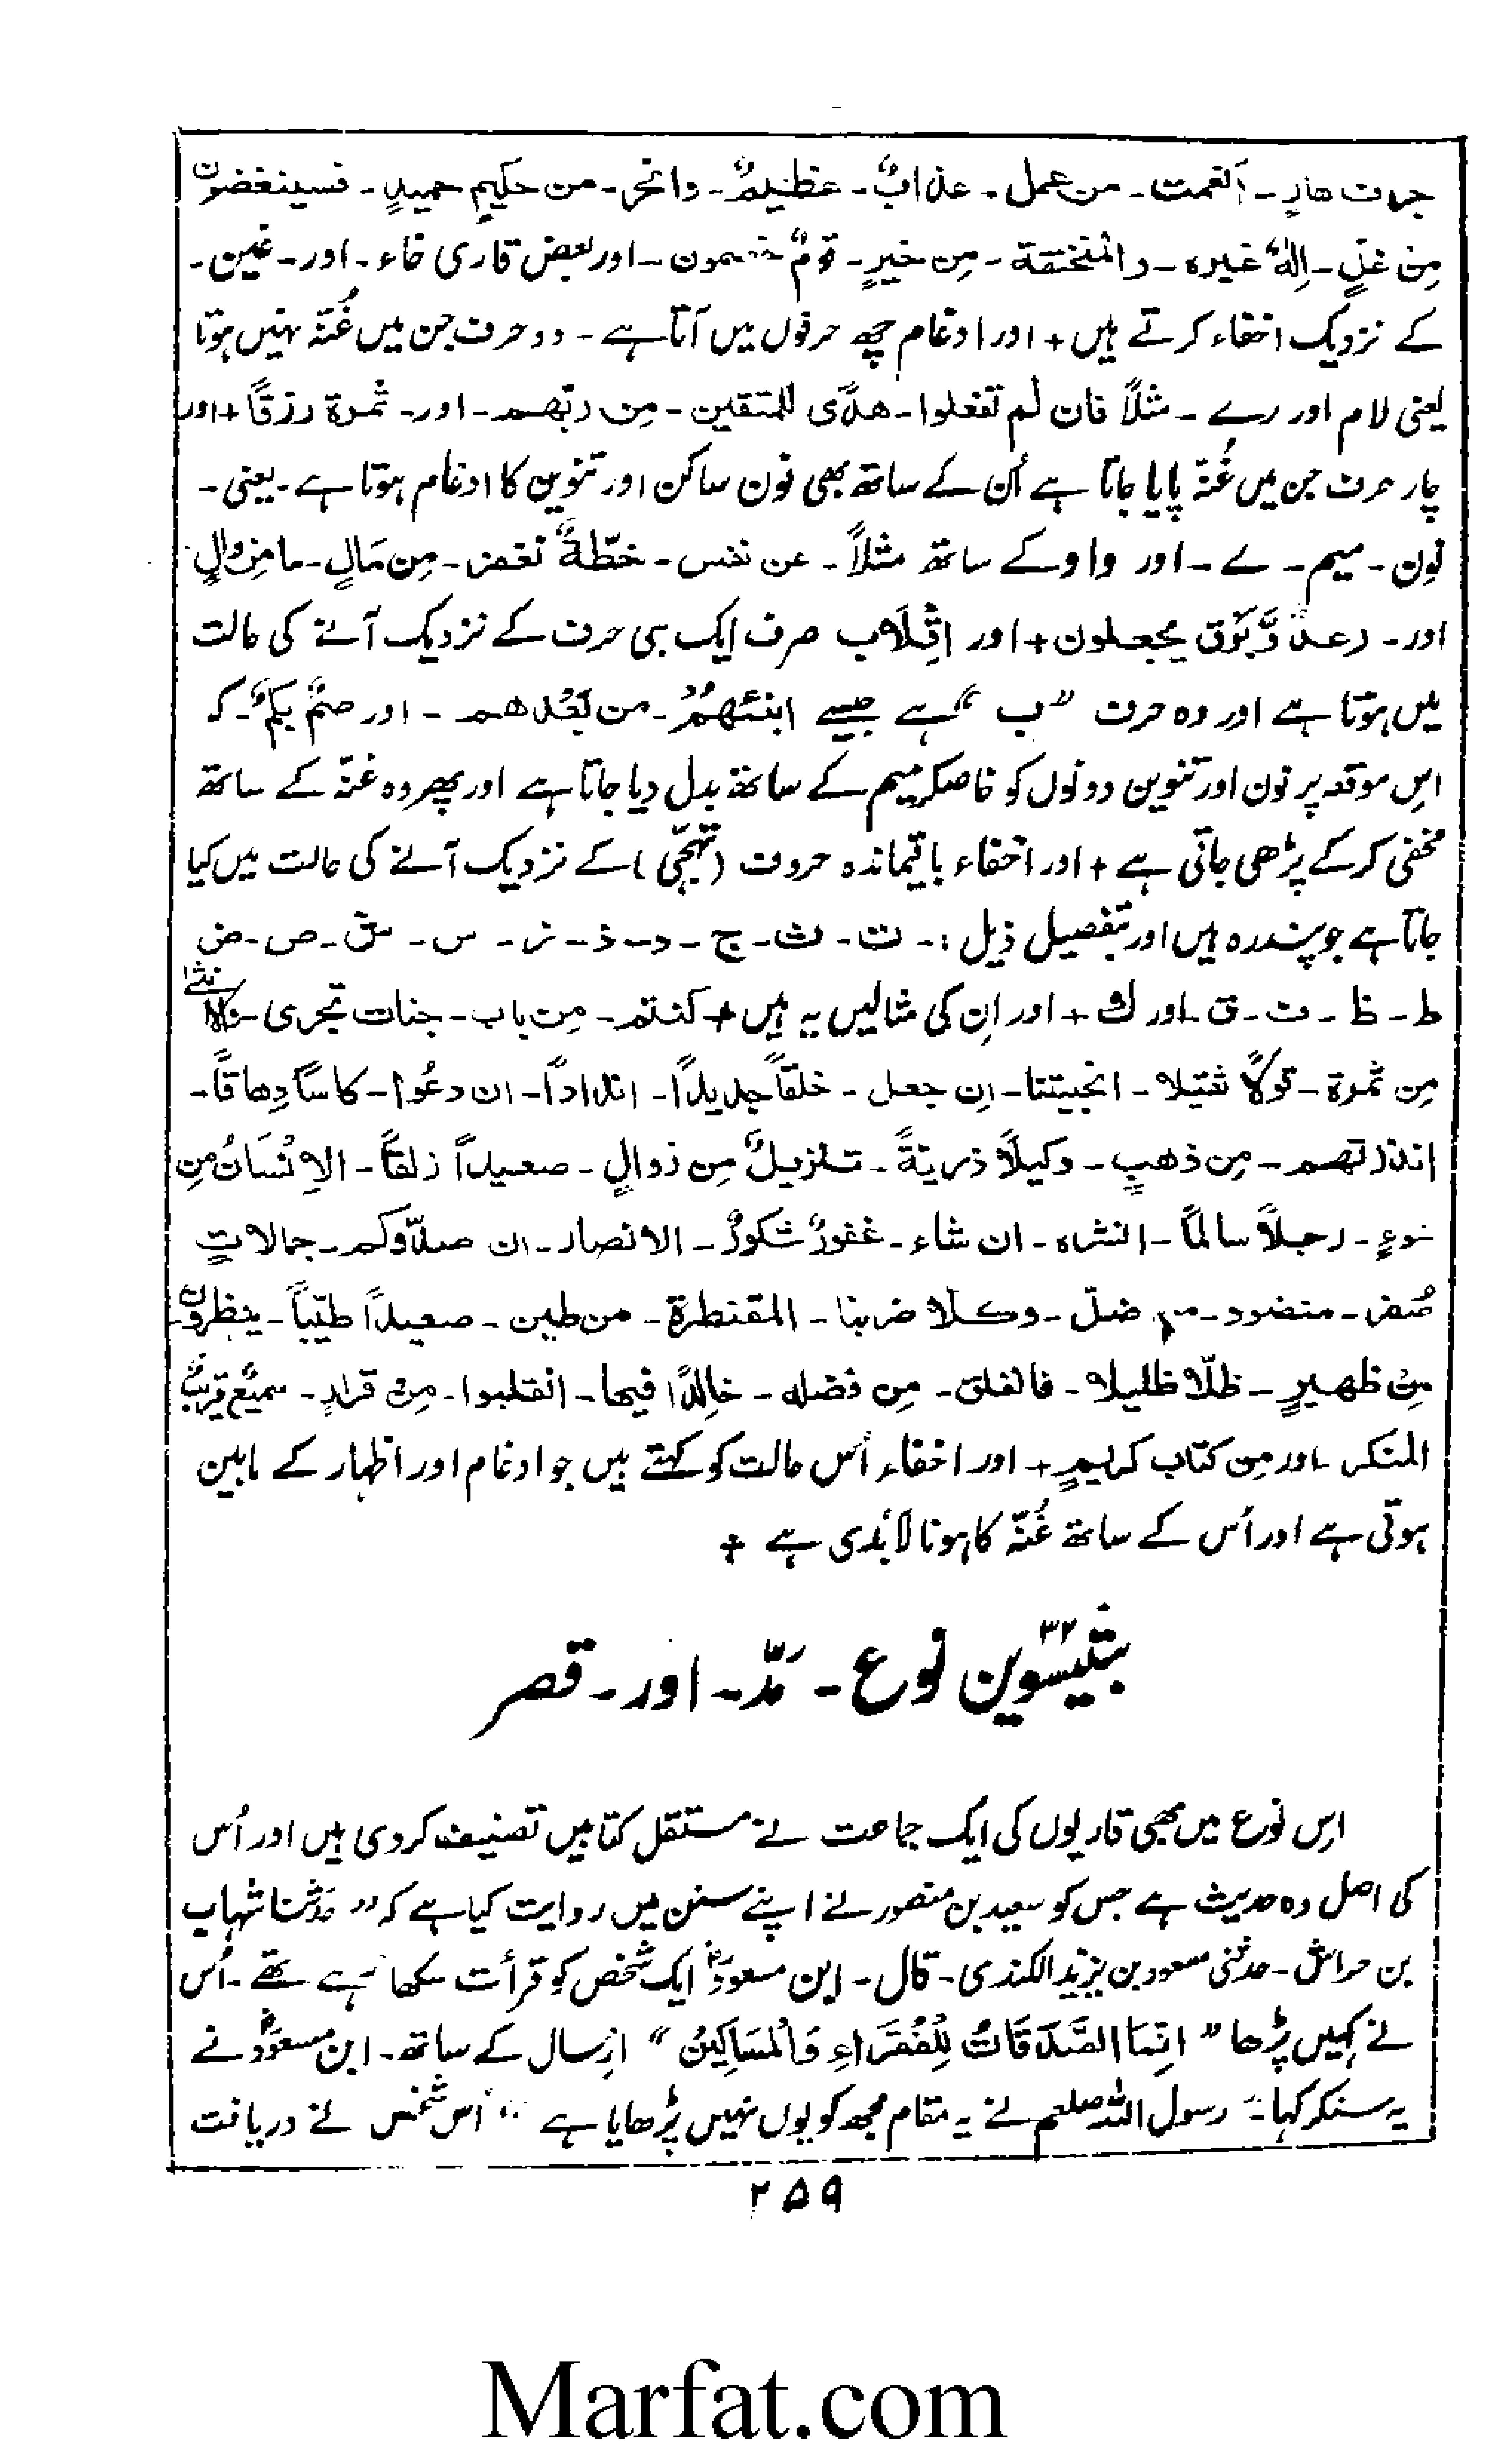 جرف ھارٍ۔ انعمت۔ من عمل۔ عذابٌ۔ عظیمٌ۔ وانحر۔ من حکیمٍ حمیدٍ۔ فسینغضون
مِن غلٍ۔ اِلٰہٌ غیرہ۔ والمنخنقة۔ مِن خیرٍ۔ قومٌ خصمون۔ اور بعض قاری خاء۔ اور۔ غین۔
کے نزدیک اخفاء کرتے ہیں + اور ادغام چھ حرفوں میں آتا ہے۔ دو حرف جن میں غُنّہ نہیں ہوتا
یعنی لام اور رے۔ مثلاً فان لم تفعلوا۔ ھدًی للمتقین۔ مِن ربّھم۔ اور۔ ثمرة رزقاً + اور
چار حرف جن میں غُنّہ پایا جاتا ہے اُن کے ساتھ بھی نون ساکن اور تنوین کا ادغام ہوتا ہے۔ یعنی۔
نون۔ میم۔ ے۔ اور واو کے ساتھ مثلاً۔ عن نفس۔ حطّةٌ نغفر۔ مِن مَالٍ۔ ما مِن والٍ
اور۔ رعدٌ وَّبَرَق یجعلون + اور اِقْلَاب صرف ایک ہی حرف کے نزدیک آنے کی حالت
میں ہوتا ہے اور وہ حرف "ب" ہے جیسے انبئھُمْ۔ من بَعْدھم۔ اور صمٌّ بکمٌ۔ کہ
اس موقعہ پر نون اور تنوین دونوں کو خاصکر میم کے ساتھ بدل دیا جاتا ہے اور پھر وہ غنّہ کے ساتھ
مخفی کر کے پڑھی جاتی ہے + اور اخفاء باقیماندہ حروف (تہجّی) کے نزدیک آنے کی حالت میں کیا
جاتا ہے جو پندرہ ہیں اور بتفصیل ذیل :۔ ت۔ ث۔ ج۔ د۔ ذ۔ ز۔ س۔ ش۔ ص۔ ض
ط۔ ظ۔ ف۔ ق۔ اور ك + اور اِن کی مثالیں یہ ہیں + کنتم۔ مِن باب۔ جنات تجری۔
مِن ثمرة۔ قولاً ثقیلا۔ انجیتنا۔ اِن جعل۔ خلقاً جدیداً۔ انداداً۔ ان دعُوا۔ کاساً دِھاقاً۔
انذرتھم۔ مِن ذھبٍ۔ وکیلاً ذریةً۔ تنزیلٌ مِن زوالٍ۔ صعیداً زلقاً۔ الاِنْسَانُ مِن
سوءٍ۔ رجلاً سالماً۔ انشرہ۔ ان شاء۔ غفورٌ شکورٌ۔ الانصار۔ ان صدّوکم۔ جمالاتٍ
صُفر۔ منضود۔ من ضلّ۔ وکلا ضربنا۔ المقنطرة۔ من طین۔ صعیداً طیّباً۔ ینظرون
مِن ظھیرٍ۔ ظلّا ظلیلا۔ فانفلق۔ مِن فضلہ۔ خالِداً فیھا۔ انقلبوا۔ مِن قرارٍ۔ سمیعٌ قریبٌ
المنکر۔ اور مِن کتاب کریمٍ + اور اخفاء اُس حالت کو کہتے ہیں جو ادغام اور اظہار کے مابین
ہوتی ہے اور اُس کے ساتھ غُنّہ کا ہونا لابُدی ہے +
بتیسوین ۳۲ نوع۔ مَدّ۔ اور۔ قصر
اِس نوع میں بھی قاریوں کی ایک جماعت نے مستقل کتابیں تصنیف کر دی ہیں اور اُس
کی اصل وہ حدیث ہے جس کو سعید بن منصور نے اپنے سنن میں روایت کیا ہے کہ "حدّثنا شہاب
بن حراش۔ حدثنی مسعود بن یزید الکندی۔ قال۔ ابن مسعودؓ ایک شخص کو قرأت سکھا رہے تھے۔ اُس
نے کہیں پڑھا "اِنَّمَا الصَّدَقَاتُ لِلْفُقَرَاءِ وَالْمَسَاکِیْنُ" اِرسال کے ساتھ۔ ابن مسعودؓ نے
یہ سنکر کہا۔ "رسول اللہ صلعم نے یہ مقام مجھ کو یوں نہیں پڑھایا ہے" اُس شخص نے دریافت
۲۵۹
Marfat.com